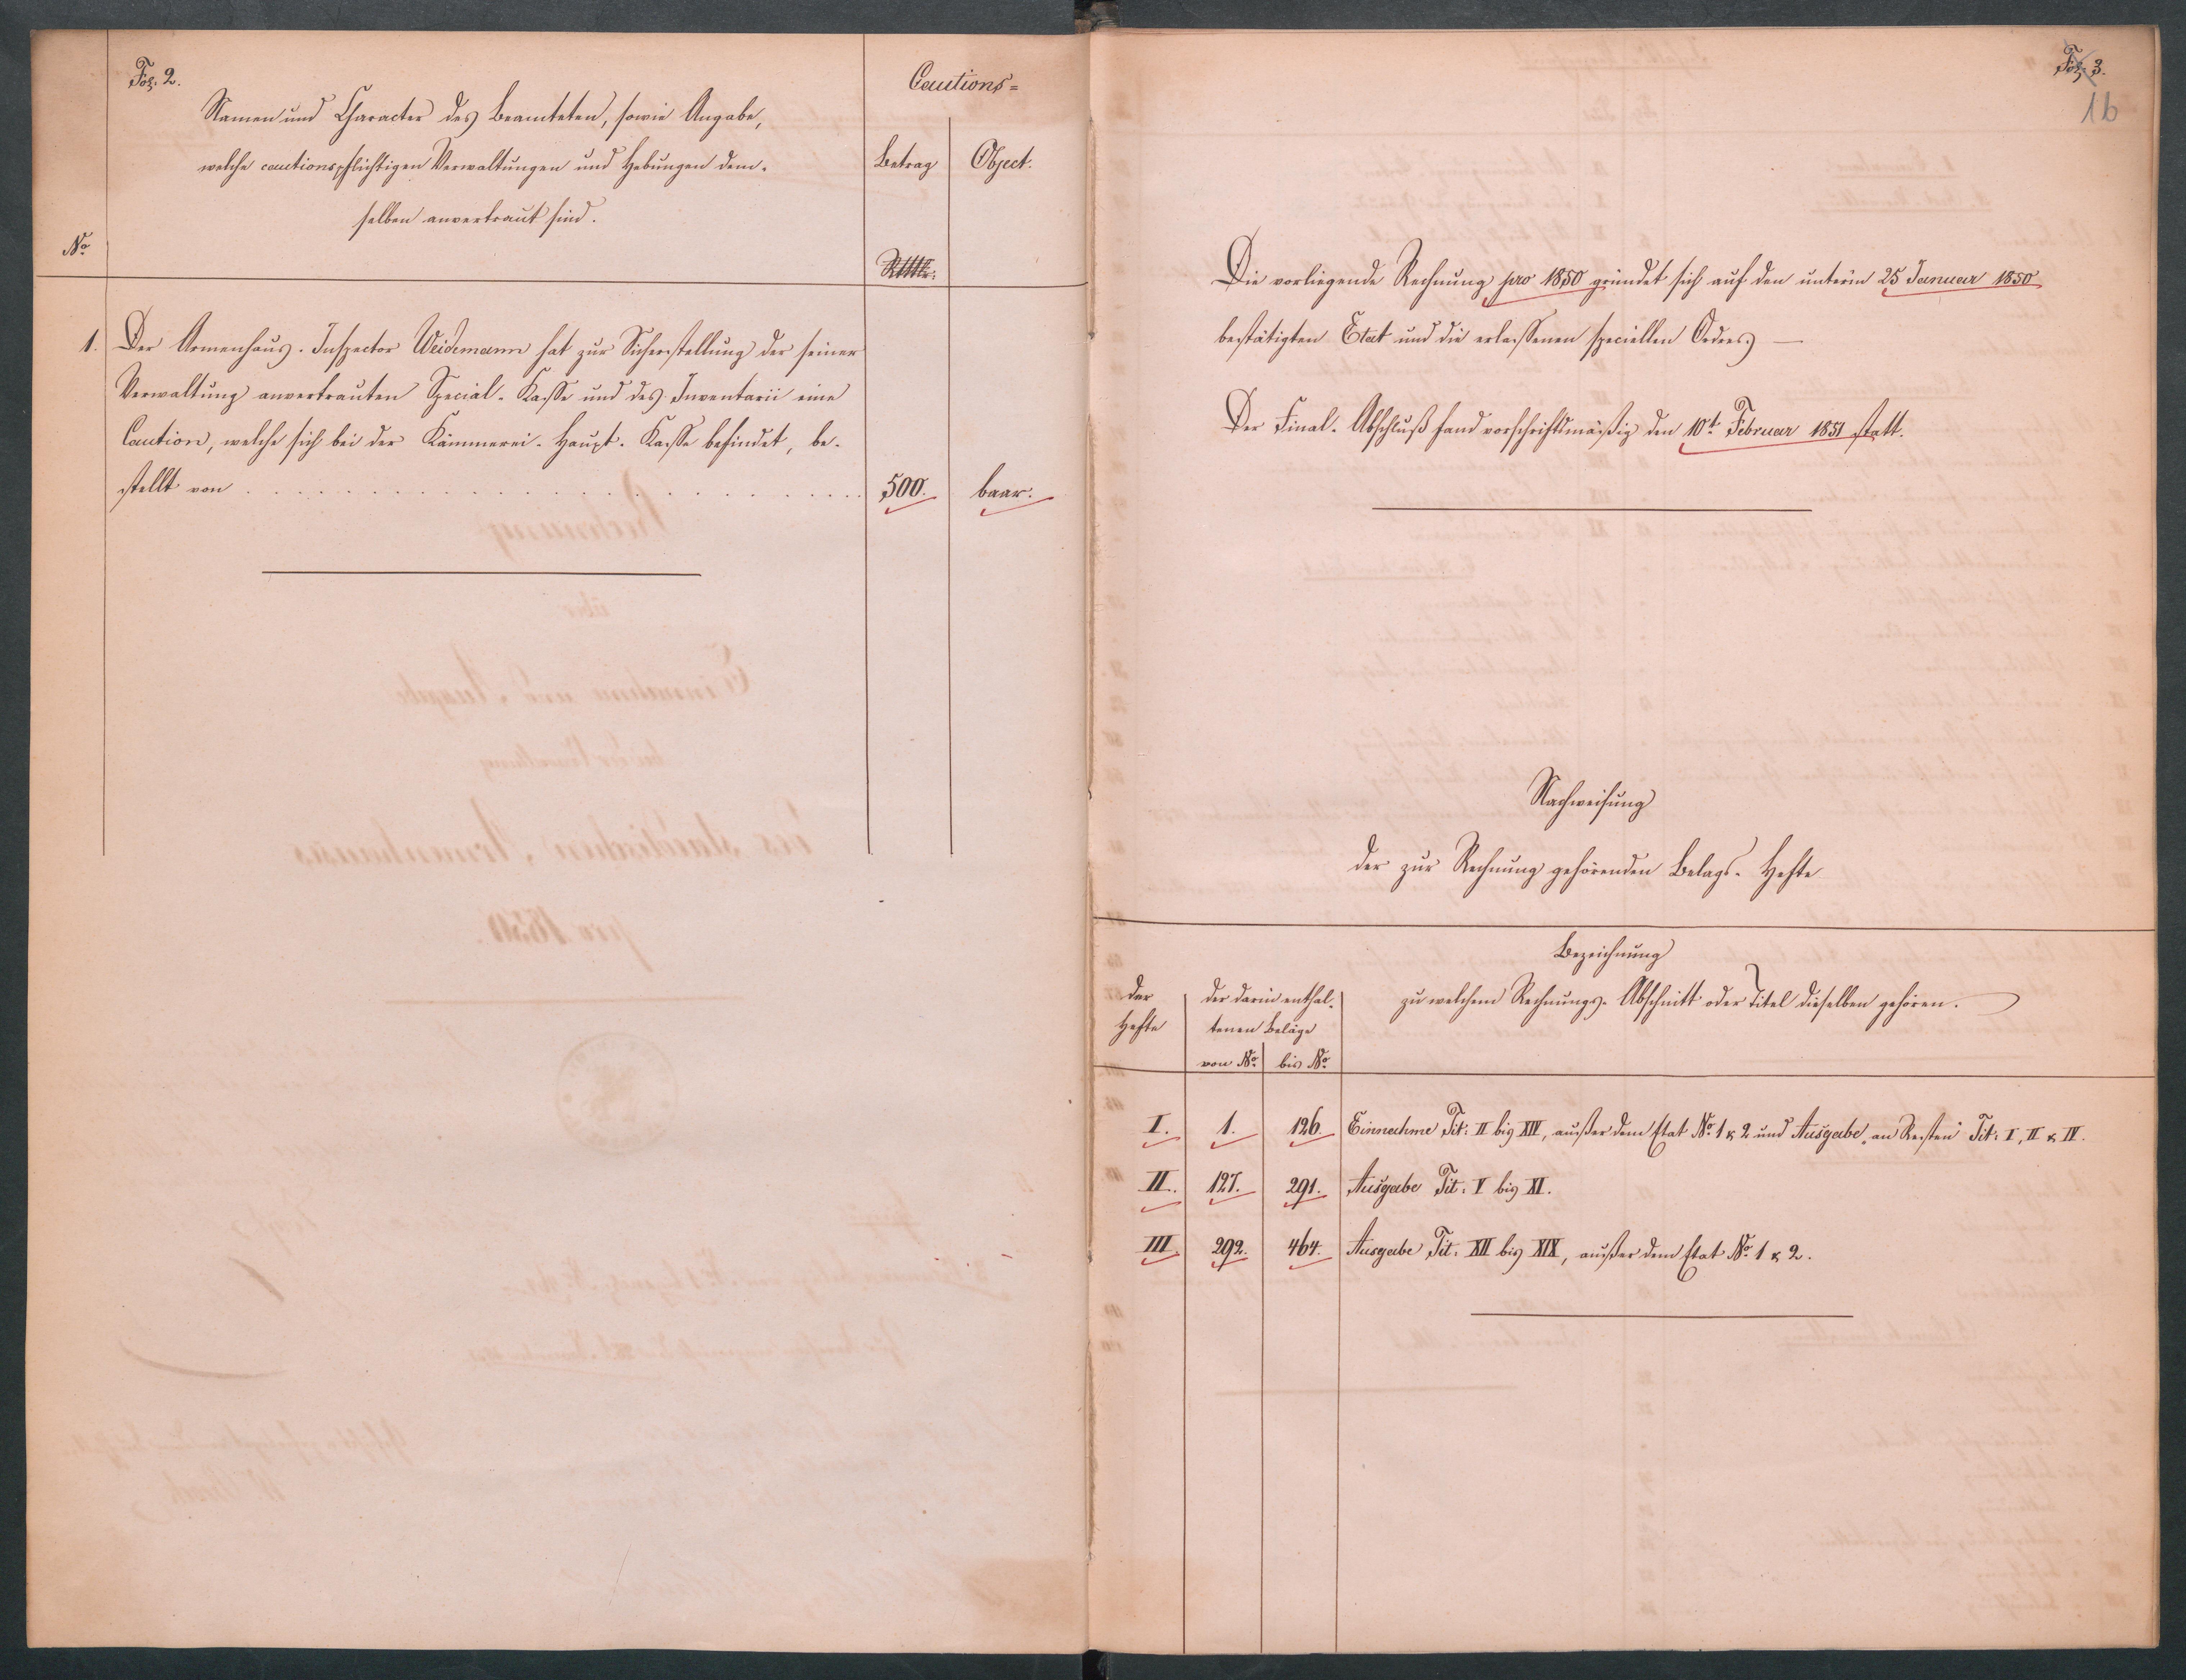 Fol. 2.
Namen und Character des Beamteten, sowie Angabe,
welche cautionspflichtigen Verwaltungen und Hebungen dem-
selben anvertraut sind.
No.
Cautions=
Betrag
Object.
1. Der Armenhaus-Inspector Weidemann hat zur Sicherstellung der seiner
Verwaltung anvertrauten Special-Kasse und des Inventarii eine
Caution, welche sich bei der Kämmerei-Haupt-Kasse befindet, be-
stellt von . . . . . . . . . . 500. baar.
Fol. 3.
16
Die vorliegende Rechnung pro 1850 gründet sich auf den unterm 25 Januar 1850
bestätigten Etat und die erlassenen speciellen Ordres. —
Der Final-Abschluß fand vorschriftsmäßig den 10t. Februar 1851 statt.
Nachweisung
der zur Rechnung gehörenden Belags-Hefte
Bezeichnung
der
Hefte
der darin enthal-
tenen Beläge
von No. bis No.
zu welchem Rechnungs-Abschnitt oder Titel dieselben gehören.
I. 1. 126. Einnahme Tit: II bis XIII, außer dem Etat No. 1 & 2 und Ausgabe „an Resten" Tit: I, II & IV.
II. 127. 291. Ausgabe Tit: V bis XI.
III. 292. 464. Ausgabe Tit: XII bis XIX, außer dem Etat No. 1 & 2.